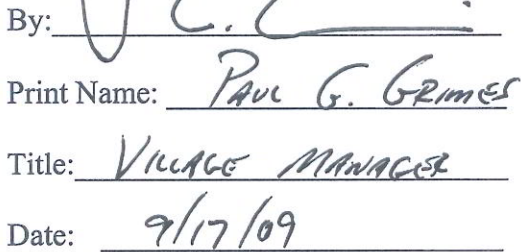 By:
Print Name: PAUL G. GRIMES
Title: VILLAGE MANAGER
Date: 9/17/09